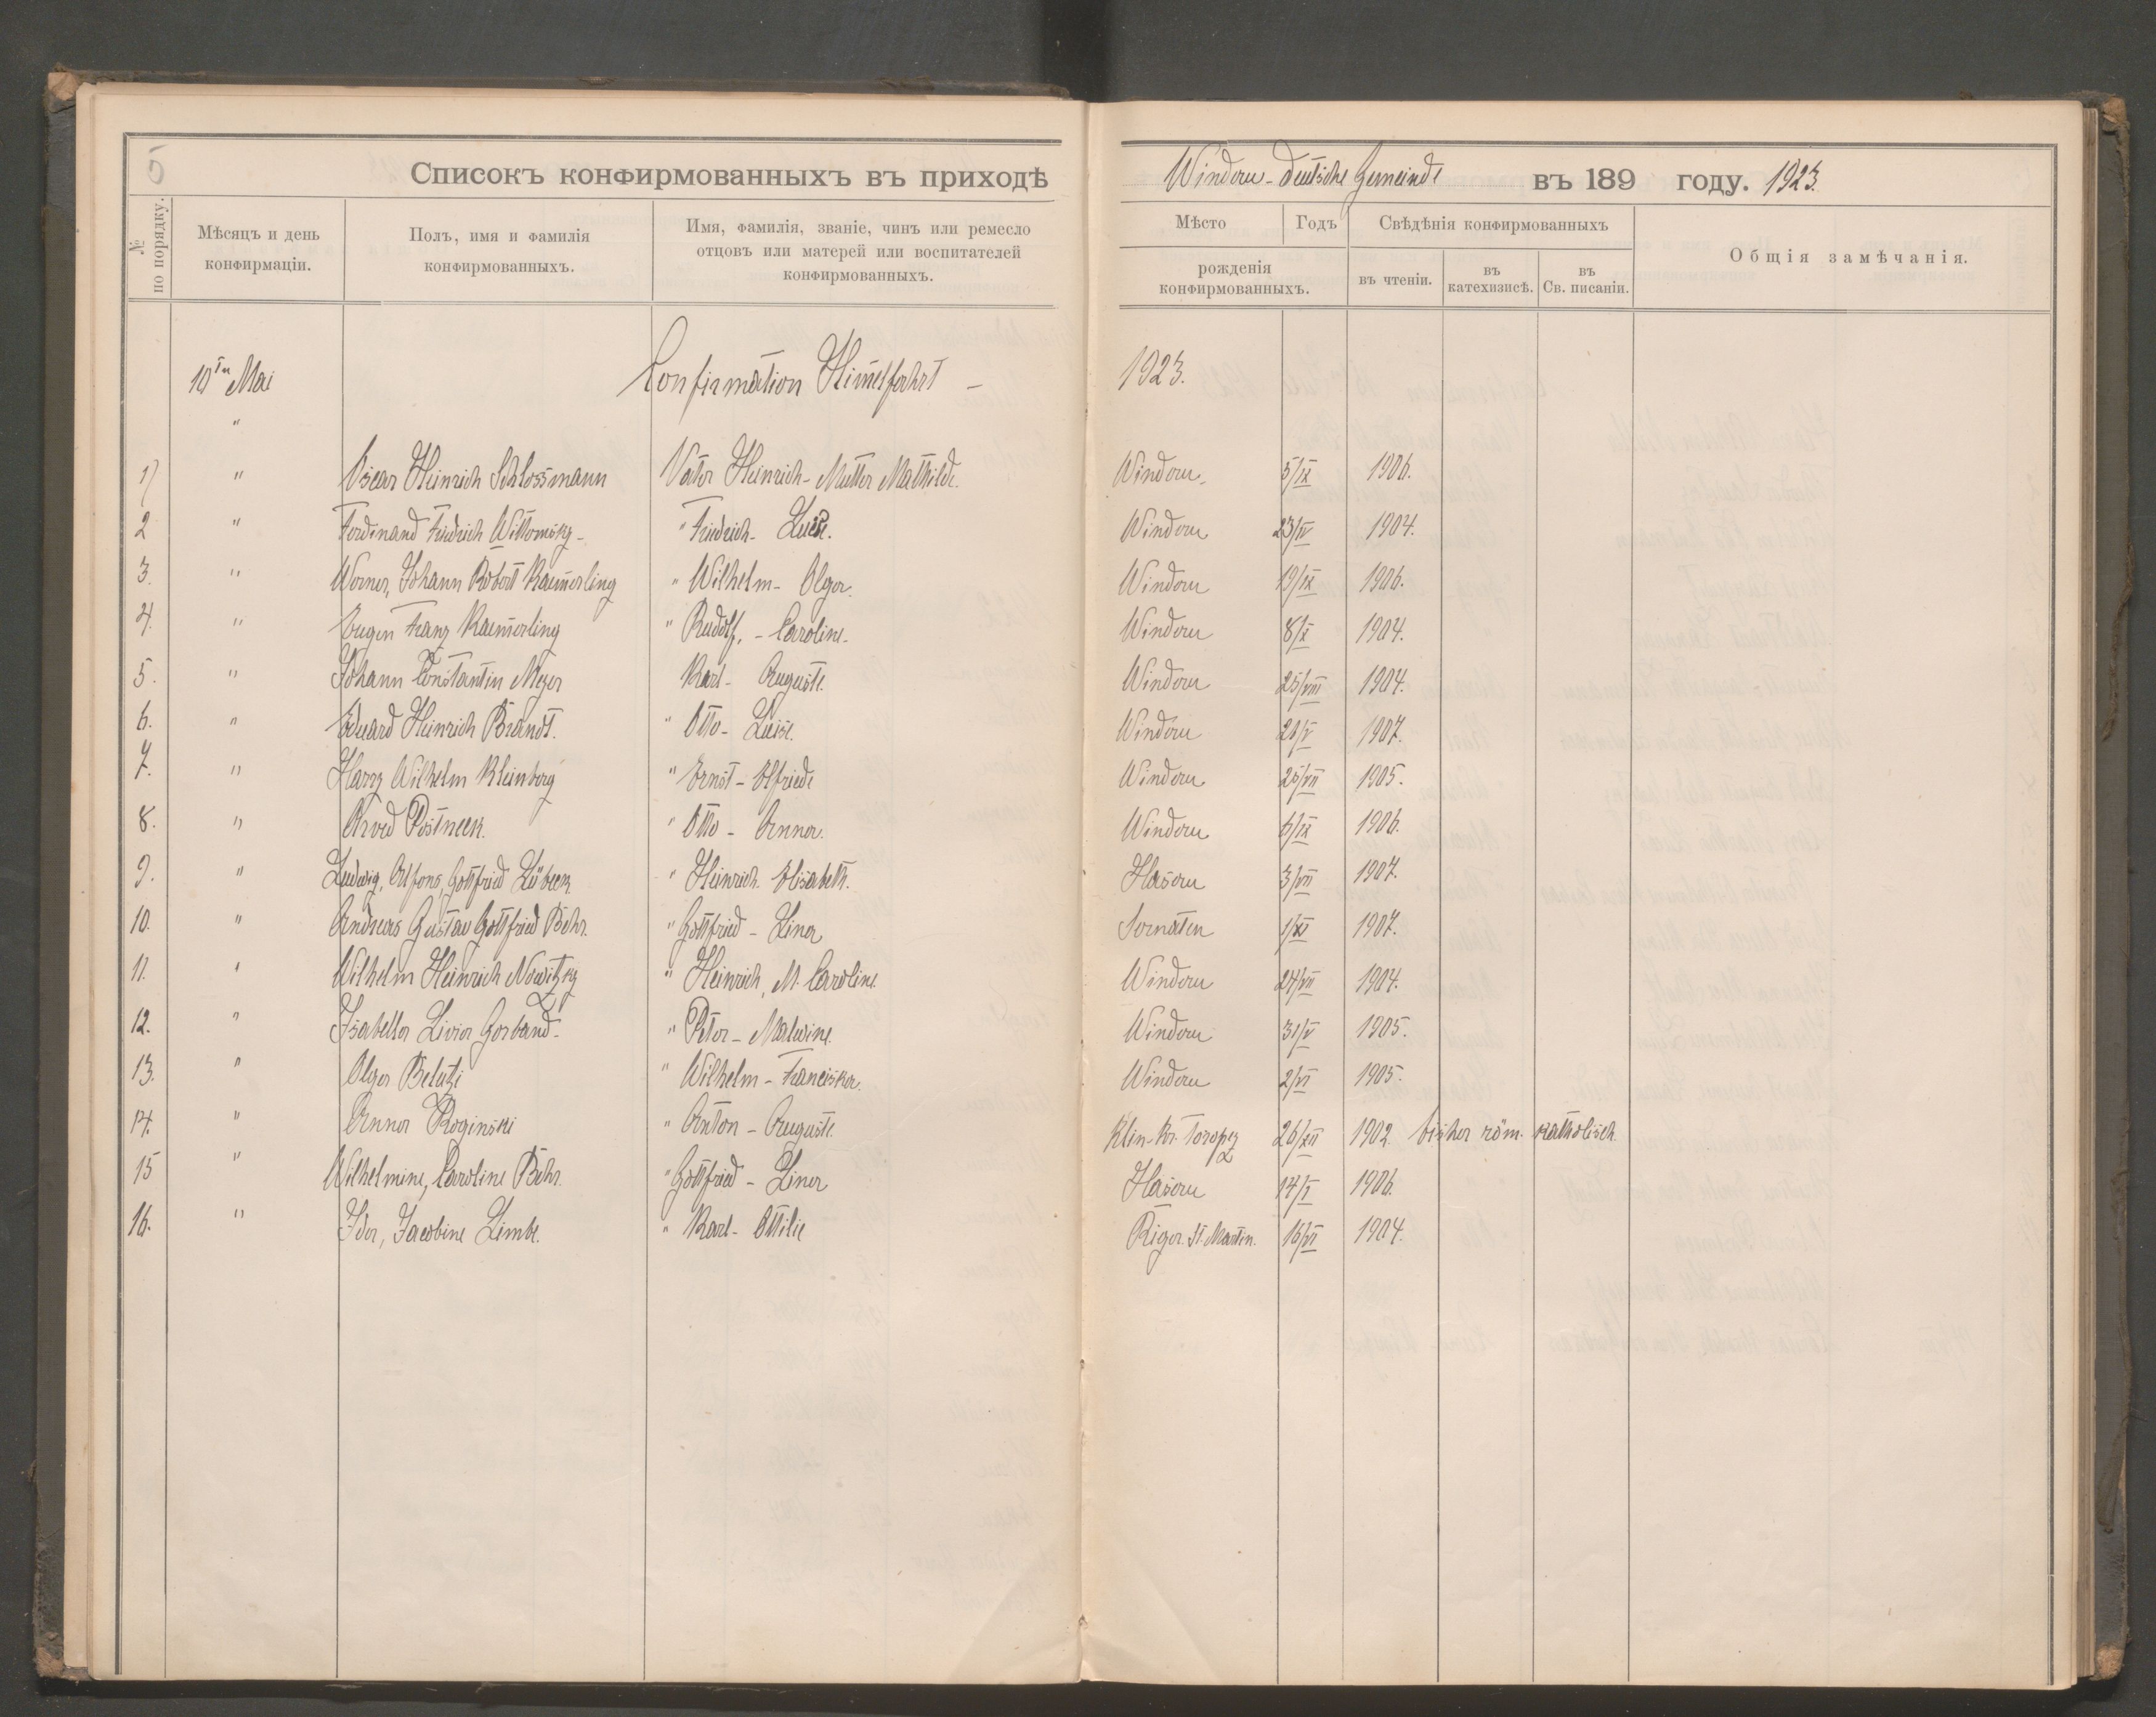 5
Списокъ конфирмованныхъ въ приходѣ Windau-deutsche Gemeinde въ 189 году. 1923.
№ по порядку.
Мѣсяцъ и день конфирмаціи.
Полъ, имя и фамилія конфирмованныхъ.
Имя, фамилія, званіе, чинъ или ремесло отцовъ или матерей или воспитателей конфирмованныхъ.
Мѣсто Годъ
рожденія конфирмованныхъ.
Свѣдѣнія конфирмованныхъ
въ чтеніи. въ катехизисѣ. въ Св. писаніи.
Общія замѣчанія.
10ten Mai Confirmation Himelfahrt - 1923.
"
1) " Oscar Heinrich Schlossmann Vater Heinrich - Mutter Mathilde. Windau 5/IX 1906.
2 " Ferdinand Friedrich Wittomsky - " Friedrich - Luise. Windau 23/IV 1904.
3. " Werner, Johann Robert Kaem̄erling " Wilhelm - Olga. Windau 19/IX 1906.
4. " Eugen Franz Kaem̄erling " Rudolf. - Caroline - Windau 8/X 1904.
5. " Johann Constantin Meyer Karl - Auguste. Windau 25/VIII 1904.
6. " Eduard Heinrich Brandt. " Otto - Luise. Windau 21/V 1907.
7. " Harry Wilhelm Kleinberg " Ernst - Elfriede Windau 25/VII 1905.
8. " Arved Postneek. " Otto - Anna. Windau 6/IX 1906.
9. " Ludwig, Alfons, Gottfried Lübeck " Heinrich. Elisabeth. Hasau 3/VII 1907.
10. " Andreas Gustav Gottfried Behr. " Gottfried - Lina Sarnaten 1/XI 1907.
11. " Wilhelm Heinrich Nowitzky " Heinrich, M. Caroline. Windau 24/VII 1904.
12. " Isabella Livia Garband - " Peter - Malwine. Windau 31/V 1905.
13. " Olga Belutzi " Wilhelm - Franciska. Windau 2/VI 1905.
14. " Anna Roginski " Anton - Auguste. Klin - Kr. Toropez 26/XII 1902. bisher röm. katholisch.
15 " Wilhelmine, Caroline Behr. " Gottfried - Lina Hasau 14/I 1906.
16. " Ida, Jacobine Limbe. " Karl - Ottilie Riga. St. Martin. 16/VI 1904.